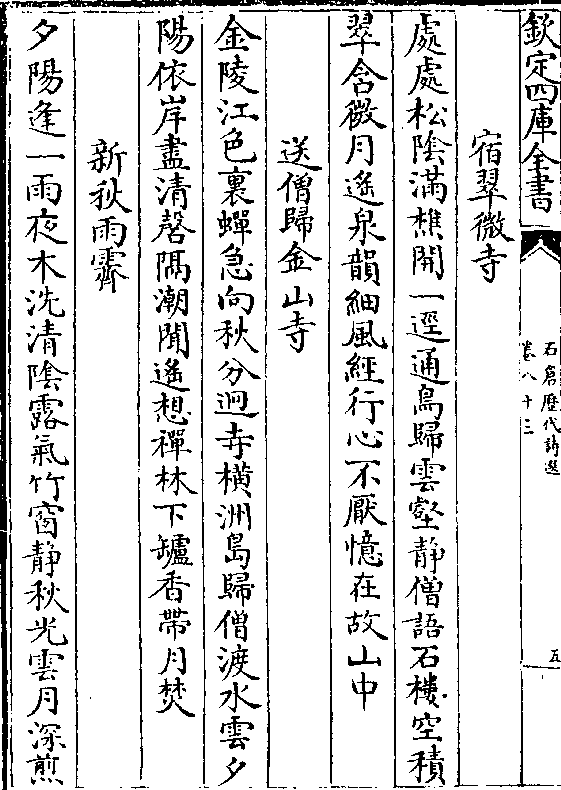 欽定四庫全書
石倉歷代詩選
卷八十三
五
宿翠微寺
處處松陰滿樵開一逕通鳥歸雲壑静僧語石樓空積
翠含微月遙泉韻細風經行心不厭憶在故山中
送僧歸金山寺
金陵江色裏蟬急向秋分迥寺橫洲島歸僧渡水雲夕
陽依岸盡清磬隔潮聞遙想禪林下罏香帶月焚
新秋雨霽
夕陽逢一雨夜木洗清陰露氣竹窗静秋光雲月深煎